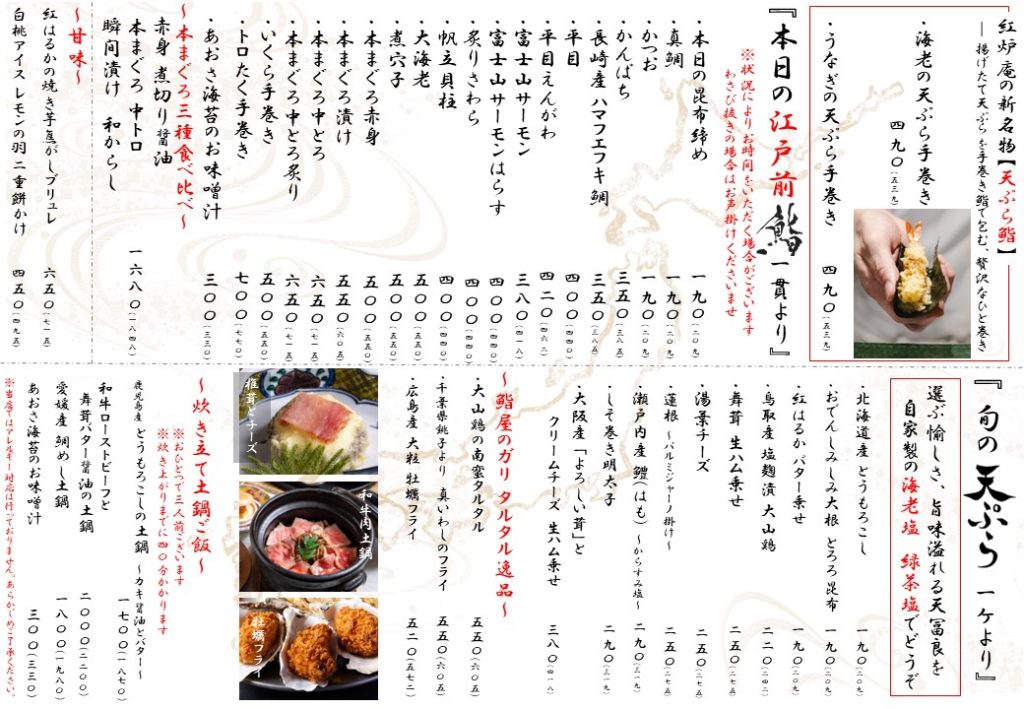 紅炉庵の新名物【天ぷら鮨】
― 揚げたて天ぷらを手巻き鮨で包む、贅沢なひと巻き
・海老の天ぷら手巻き 四九〇(五三九)
・うなぎの天ぷら手巻き 四九〇(五三九)
『本日の江戸前鮨 一貫より』
※状況によりお時間をいただく場合がございます
わさび抜きの場合はお声掛けくださいませ
・本日の昆布締め 一九〇(二〇九)
・真鯛 一九〇(二〇九)
・かつお 一九〇(二〇九)
・かんぱち 三五〇(三八五)
・長崎産 ハマフエフキ鯛 三五〇(三八五)
・平目 四〇〇(四四〇)
・平目えんがわ 四二〇(四六二)
・富士山サーモン 三八〇(四一八)
・富士山サーモンはらす 四〇〇(四四〇)
・炙りさわら 四〇〇(四四〇)
・帆立貝柱 四〇〇(四四〇)
・大海老 五五〇(六〇五)
・煮穴子 五五〇(六〇五)
・本まぐろ赤身 五〇〇(五五〇)
・本まぐろ漬け 五五〇(六〇五)
・本まぐろ中とろ 六五〇(七一五)
・本まぐろ中とろ炙り 六五〇(七一五)
・いくら手巻き 五〇〇(五五〇)
・トロたく手巻き 七〇〇(七七〇)
・あおさ海苔のお味噌汁 三〇〇(三三〇)
～本まぐろ三種食べ比べ～
赤身 煮切り醤油
本まぐろ 中トロ
瞬間漬け 和からし 一六八〇(一八四八)
～甘味～
紅はるかの焼き芋焦がしブリュレ 六五〇(七一五)
白桃アイス レモンの羽二重餅かけ 四五〇(四九五)
『旬の天ぷら 一ケより』
選ぶ愉しさ、旨味溢れる天冨良を
自家製の海老塩 緑茶塩でどうぞ
・北海道産 とうもろこし 一九〇(二〇九)
・おでんしみしみ大根 とろろ昆布 一九〇(二〇九)
・紅はるか バター乗せ 一九〇(二〇九)
・鳥取産 塩麹漬 大山鶏 二二〇(二四二)
・舞茸 生ハム乗せ 二五〇(二七五)
・湯葉チーズ 二五〇(二七五)
・蓮根 ～パルミジャーノ掛け～ 二五〇(二七五)
・瀬戸内産 鱧(はも) ～からすみ塩～ 二九〇(三一九)
・しそ巻き明太子 二九〇(三一九)
・大阪産「よろしい茸」と
クリームチーズ 生ハム乗せ 三八〇(四一八)
～鮨屋のガリ タルタル逸品～
・大山鶏の南蛮タルタル 五五〇(六〇五)
・千葉県銚子より 真いわしのフライ 五五〇(六〇五)
・広島産 大粒 牡蠣フライ 五二〇(五七二)
椎茸とチーズ
和牛肉土鍋
牡蠣フライ
～炊き立て土鍋ご飯～
※おひとつで三人前ございます
※炊き上がりまでに四〇分かかります
鹿児島産 とうもろこしの土鍋 ～カキ醤油とバター～ 一七〇〇(一八七〇)
和牛ローストビーフと
舞茸バター醤油の土鍋 二〇〇〇(二二〇〇)
愛媛産 鯛めし土鍋 一八〇〇(一九八〇)
あおさ海苔のお味噌汁 三〇〇(三三〇)
※当店ではアレルギー対応は行っておりません。あらかじめご了承ください。